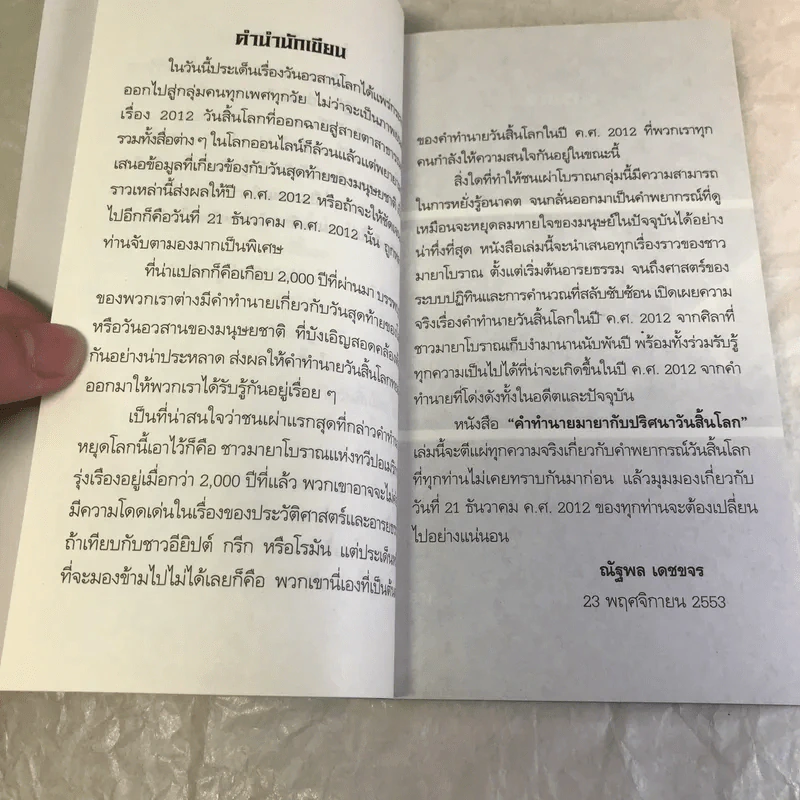 คำนำนักเขียน
ในวันนี้ประเด็นเรื่องวันอวสานโลกได้แพร่
ออกไปสู่กลุ่มคนทุกเพศทุกวัย ไม่ว่าจะเป็นภาพ
เรื่อง 2012 วันสิ้นโลกที่ออกฉายสู่สายตาสาธาร
รวมทั้งสื่อต่าง ๆ ในโลกออนไลน์ก็ล้วนแล้วแต่พยายาม
เสนอข้อมูลที่เกี่ยวข้องกับวันสุดท้ายของมนุษยชาติ
ราวเหล่านี้ส่งผลให้ปี ค.ศ. 2012 หรือถ้าจะให้ชัด
ไปอีกก็คือวันที่ 21 ธันวาคม ค.ศ. 2012 นั้น ถูก
ท่านจับตามองมากเป็นพิเศษ
ที่น่าแปลกก็คือเกือบ 2,000 ปีที่ผ่านมา บรรพ
ของพวกเราต่างมีคำทำนายเกี่ยวกับวันสุดท้ายของ
หรือวันอวสานของมนุษยชาติ ที่บังเอิญสอดคล้อง
กันอย่างน่าประหลาด ส่งผลให้คำทำนายวันสิ้นโลก
ออกมาให้พวกเราได้รับรู้กันอยู่เรื่อย ๆ
เป็นที่น่าสนใจว่าชนเผ่าแรกสุดที่กล่าวคำทำ
หยุดโลกนี้เอาไว้ก็คือ ชาวมายาโบราณแห่งทวีปอเมริ
รุ่งเรืองอยู่เมื่อกว่า 2,000 ปีที่แล้ว พวกเขาอาจจะไม่
มีความโดดเด่นในเรื่องของประวัติศาสตร์และอารยธร
ถ้าเทียบกับชาวอียิปต์ กรีก หรือโรมัน แต่ประเด็น
ที่จะมองข้ามไปไม่ได้เลยก็คือ พวกเขานี่เองที่เป็นต้น
ของคำทำนายวันสิ้นโลกในปี ค.ศ. 2012 ที่พวกเราทุก
คนกำลังให้ความสนใจกันอยู่ในขณะนี้
สิ่งใดที่ทำให้ชนเผ่าโบราณกลุ่มนี้มีความสามารถ
ในการหยั่งรู้อนาคต จนกลั่นออกมาเป็นคำพยากรณ์ที่ดู
เหมือนจะหยุดลมหายใจของมนุษย์ในปัจจุบันได้อย่าง
น่าทึ่งที่สุด หนังสือเล่มนี้จะนำเสนอทุกเรื่องราวของชาว
มายาโบราณ ตั้งแต่เริ่มต้นอารยธรรม จนถึงศาสตร์ของ
ระบบปฏิทินและการคำนวณที่สลับซับซ้อน เปิดเผยความ
จริงเรื่องคำทำนายวันสิ้นโลกในปี ค.ศ. 2012 จากศิลาที่
ชาวมายาโบราณเก็บงำมานานนับพันปี พร้อมทั้งร่วมรับรู้
ทุกความเป็นไปได้ที่น่าจะเกิดขึ้นในปี ค.ศ. 2012 จากคำ
ทำนายที่โด่งดังทั้งในอดีตและปัจจุบัน
หนังสือ “คำทำนายมายากับปริศนาวันสิ้นโลก”
เล่มนี้จะตีแผ่ทุกความจริงเกี่ยวกับคำพยากรณ์วันสิ้นโลก
ที่ทุกท่านไม่เคยทราบกันมาก่อน แล้วมุมมองเกี่ยวกับ
วันที่ 21 ธันวาคม ค.ศ. 2012 ของทุกท่านจะต้องเปลี่ยน
ไปอย่างแน่นอน
ณัฐพล เดชขจร
23 พฤศจิกายน 2553